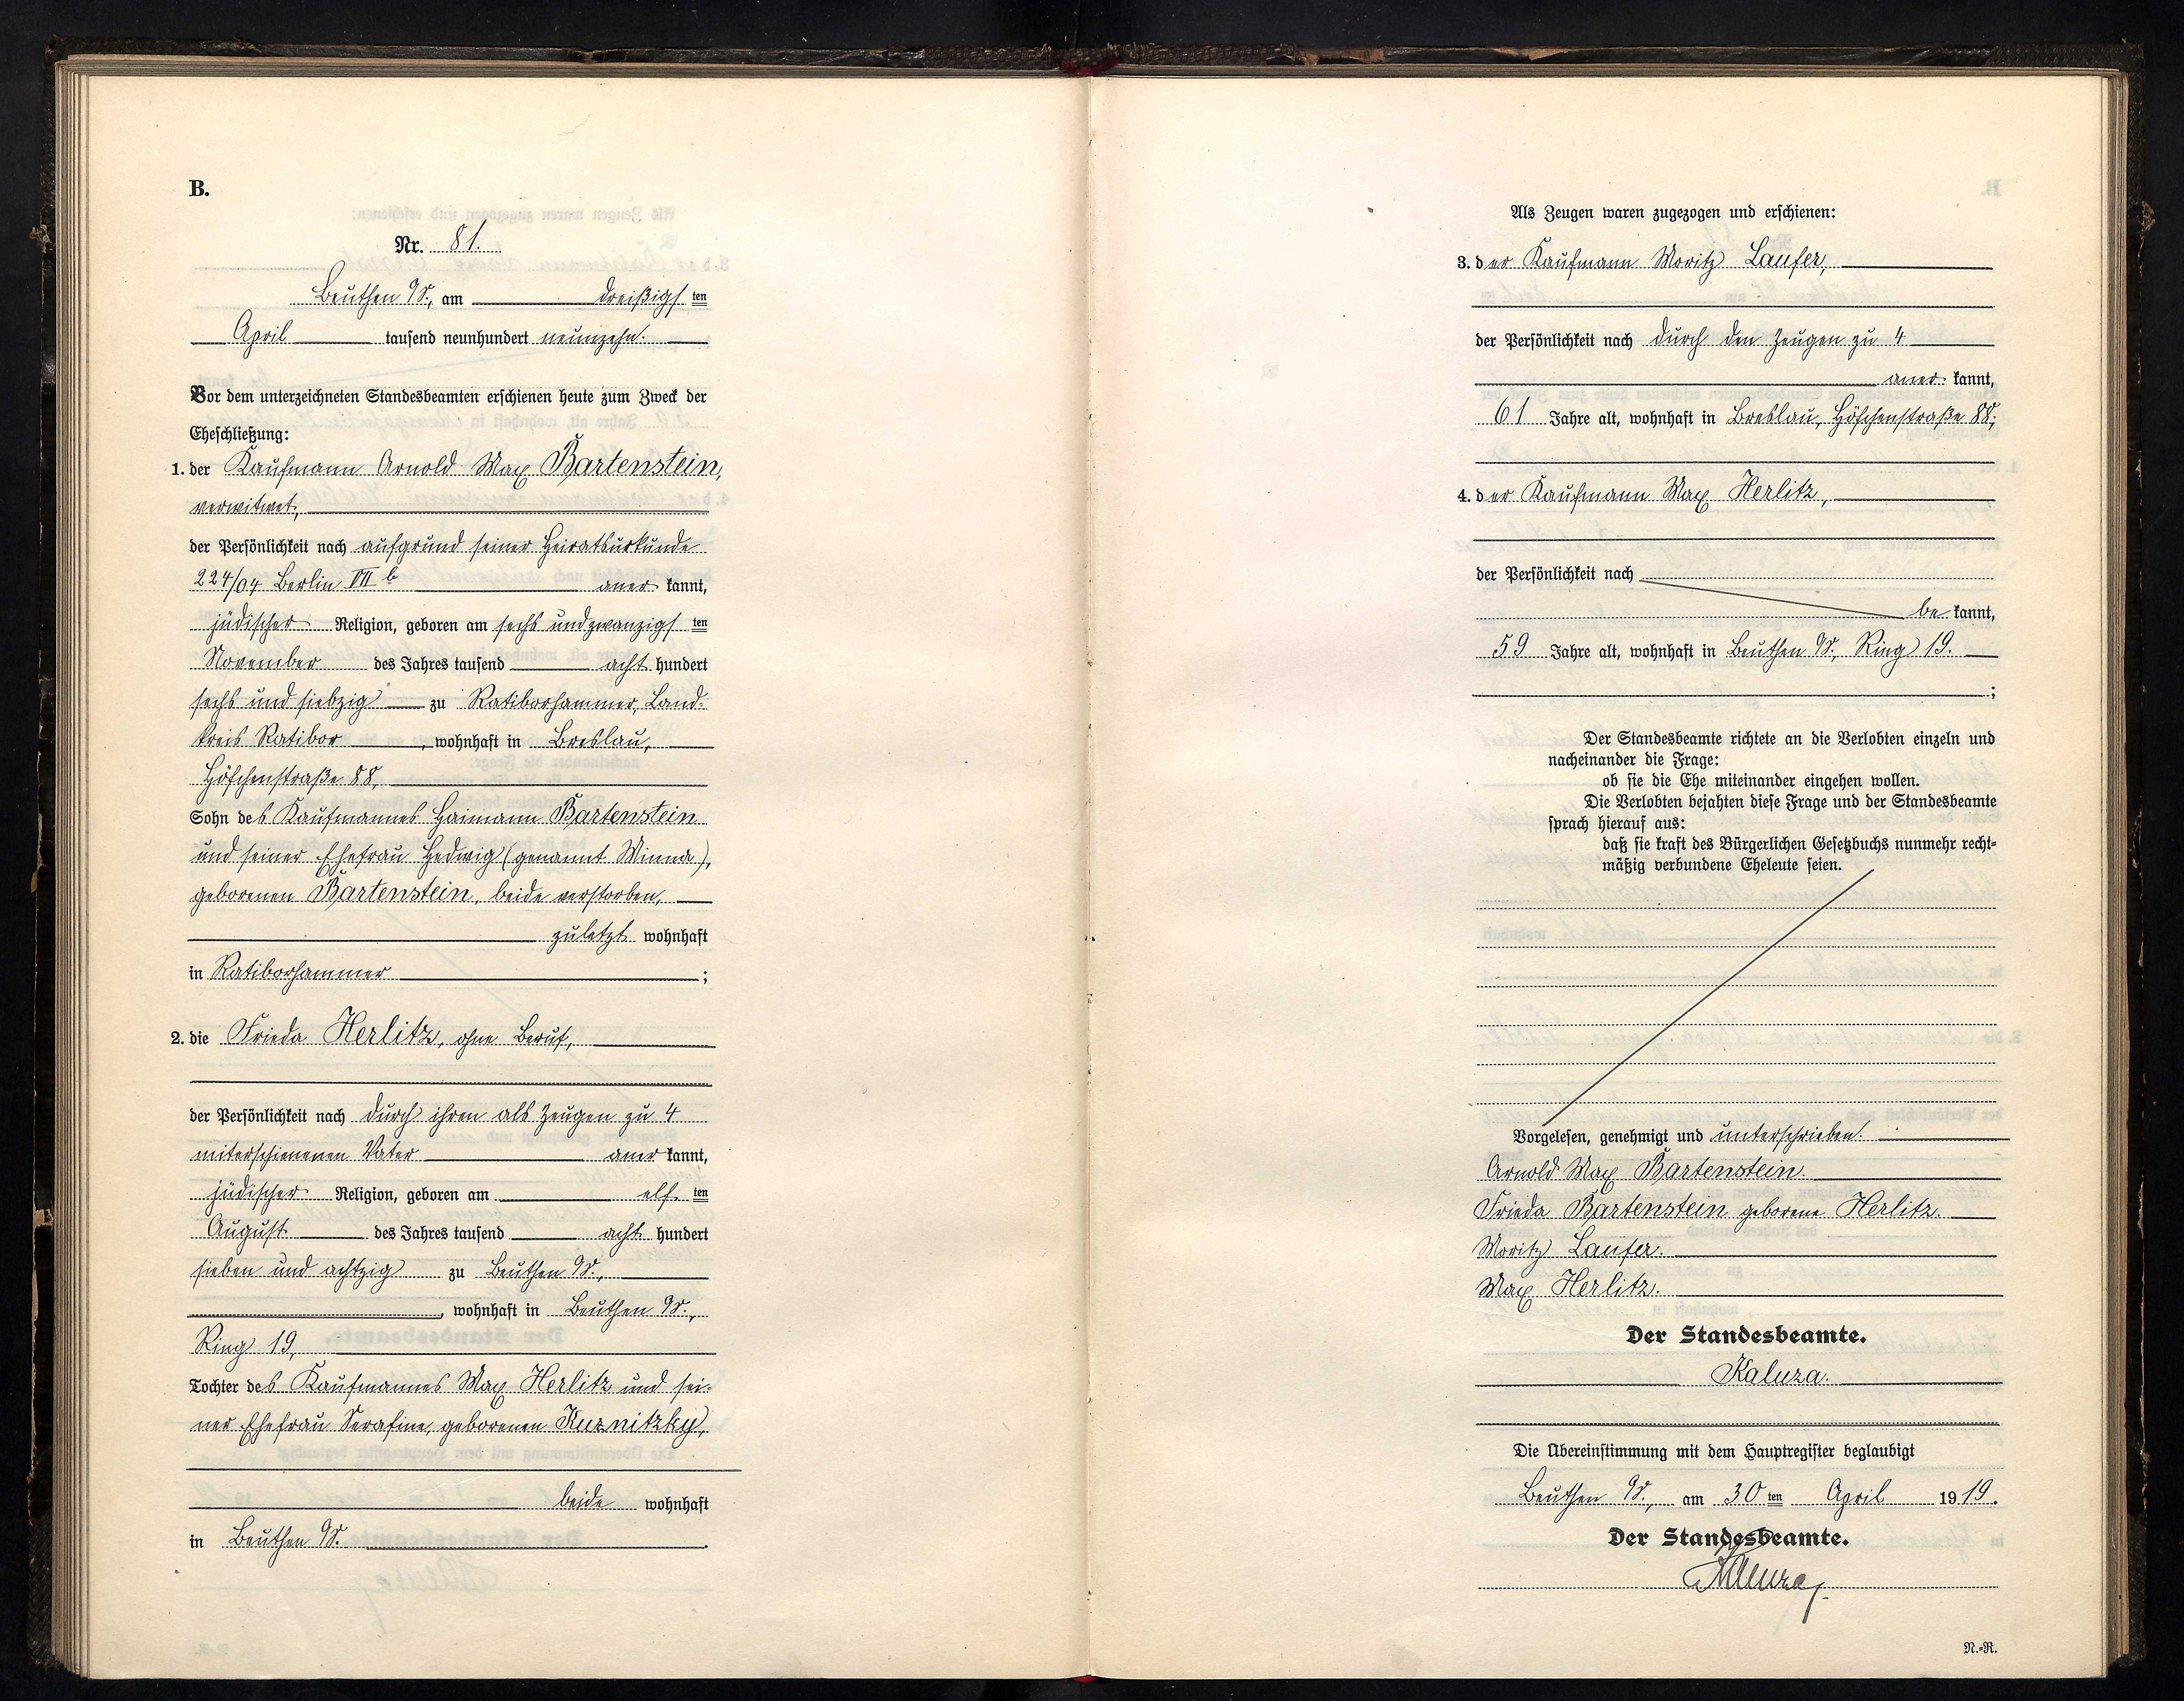 B.
Nr. 81.
Beuthen O/S., am dreißigsten
April tausend neunhundert neunzehn.
Vor dem unterzeichneten Standesbeamten erschienen heute zum Zweck der
Eheschließung:
1. der Kaufmann Arnold Max Bartenstein,
verwitwet,
der Persönlichkeit nach aufgrund seiner Heiratsurkunde
224/04 Berlin VII b anerkannt,
jüdischer Religion, geboren am sechsundzwanzigsten
November des Jahres tausend achthundert
sechs und siebzig zu Ratiborhammer, Land-
kreis Ratibor, wohnhaft in Breslau,
Höfchenstraße 88,
Sohn des Kaufmannes Haimann Bartenstein
und seiner Ehefrau Hedwig (genannt Minna),
geborenen Bartenstein, beide verstorben,
zuletzt wohnhaft
in Ratiborhammer;
2. die Frieda Herlitz, ohne Beruf,
der Persönlichkeit nach durch ihren als Zeugen zu 4
miterschienenen Vater anerkannt,
jüdischer Religion, geboren am elften
August des Jahres tausend achthundert
sieben und achtzig zu Beuthen O/S.,
, wohnhaft in Beuthen O/S.,
Ring 19,
Tochter des Kaufmannes Max Herlitz und sei-
ner Ehefrau Serafine, geborenen Kuznitzky,
beide wohnhaft
in Beuthen O/S.
Als Zeugen waren zugezogen und erschienen:
3. der Kaufmann Moritz Laufer,
der Persönlichkeit nach durch den Zeugen zu 4
anerkannt,
61 Jahre alt, wohnhaft in Breslau, Höfchenstraße 88;
4. der Kaufmann Max Herlitz,
der Persönlichkeit nach
bekannt,
59 Jahre alt, wohnhaft in Beuthen O/S., Ring 19.
;
Der Standesbeamte richtete an die Verlobten einzeln und
nacheinander die Frage:
ob sie die Ehe miteinander eingehen wollen.
Die Verlobten bejahten diese Frage und der Standesbeamte
sprach hierauf aus:
daß sie kraft des Bürgerlichen Gesetzbuchs nunmehr recht-
mäßig verbundene Eheleute seien.
Vorgelesen, genehmigt und unterschrieben.
Arnold Max Bartenstein.
Frieda Bartenstein geborene Herlitz.
Moritz Laufer.
Max Herlitz.
Der Standesbeamte.
Kaluza.
Die Übereinstimmung mit dem Hauptregister beglaubigt
Beuthen O/S., am 30ten April 1919.
Der Standesbeamte.
Kaluza
N.-R.